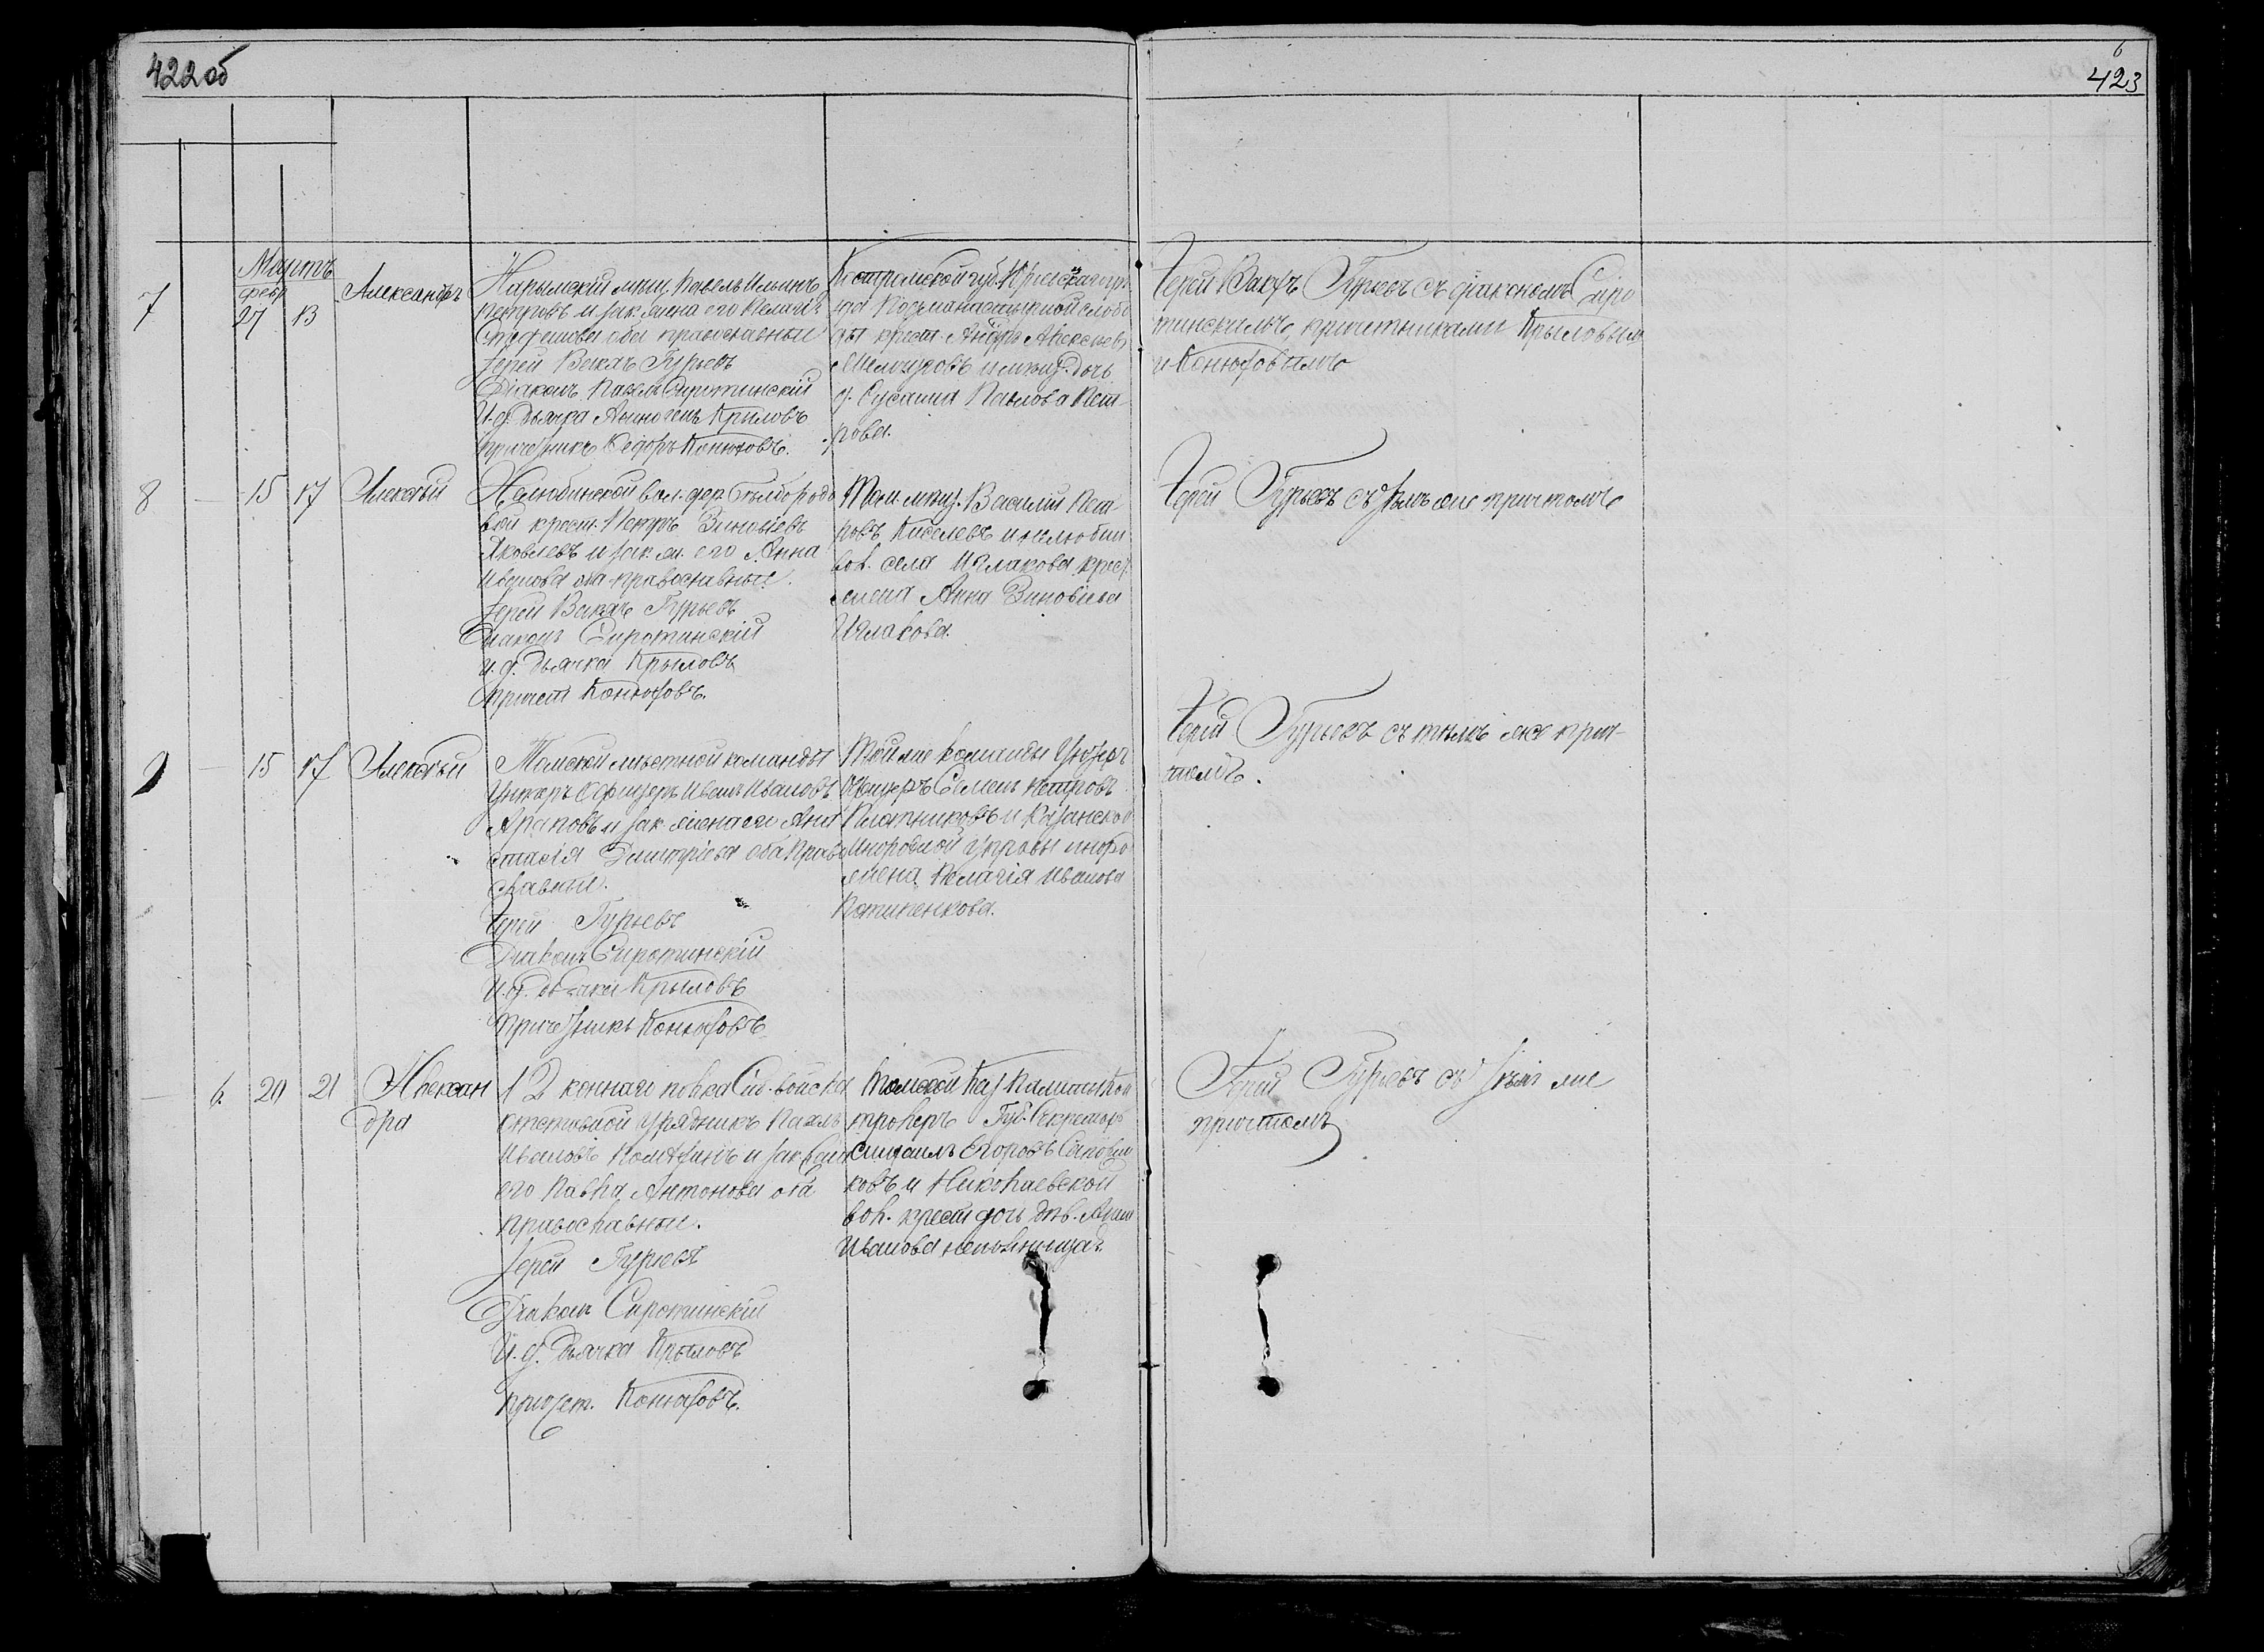 422 об
6
423
Мартъ
7
февр
27 13
Александръ
Нарымскій мѣщ. Павелъ Ильинъ
Петровъ и зак. жена его Пелагія
Стефанова оба православныи
Іерей Вакхъ Гурьевъ
Діаконъ Павелъ Сиротинскій
И. д. Дьячка Крыловъ
Причетникъ Ѳедоръ Конюховъ.
Костромской губ.
слобо
ды крест. Андрей Алексѣевъ
и мѣщ. дочь
д. Сусанна Павлова Пет-
рова.
Іерей Вакхъ Гурьевъ съ діакономъ Сиро
тинскимъ, причетниками Крыловымъ
и Конюховымъ
8 — 15 17 Алексѣй
Нелюбинской вол. дер. Бѣлобородо
вой крест. Петръ Зиновьевъ
Яковлевъ и зак. ж. его Анна
Иванова оба православные.
Іерей Вакхъ Гурьевъ
Діаконъ Сиротинскій
и. д. Дьячка Крыловъ
Причет Конюховъ.
Том. мѣщ. Василій Пет-
ровъ Киселевъ и нелюбин
вол. села Иглакова крес.
жена Анна Зиновьева
Иглакова.
Іерей Гурьевъ съ тѣмъ же причтомъ
9 — 15 17 Алексѣй
Томской мѣстной команды
Унтеръ Офицеръ Иванъ Ивановъ
Араповъ и зак жена его Ана
стасія Дмитріева оба Право
славные.
Іерей Гурьевъ
Діаконъ Сиротинскій
И. д. дьячка Крыловъ
Причетникъ Конюховъ
Той же команды Унтеръ
Офицеръ Семенъ Петровъ
Плотниковъ и Казанской
Инородной Управы инород
жена Пелагія Иванова
Потипенкова.
Іерей Гурьевъ съ тѣмъ же прич-
томъ.
— 6 20 21 Алексан
дра
12 коннаго полка Сиб. войска
отставной Урядникъ Павелъ
Ивановъ и зак жена
его Павла Антонова оба
православныи.
Іерей Гурьевъ
Діаконъ Сиротинскій
И. д. Дьячка Крыловъ
причет. Конюховъ.
Томской Каз Палаты Кон
тролеръ Губ. Секретарь
Михаилъ Егоровъ
ковъ и Николаевской
вол. крест дочь дѣв. Анна
Иванова
Іерей Гурьевъ съ тѣмъ же
причтомъ